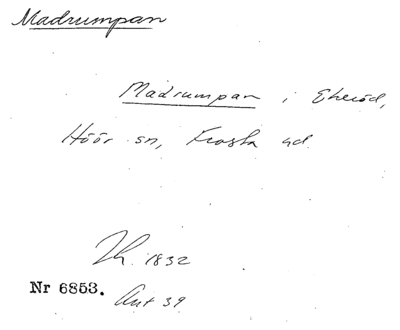 Madrumpan
Madrumpan i Ekeröd,
Höör sn, Frosta hd
Lh. 1832
Nr 6853.
Ant 39